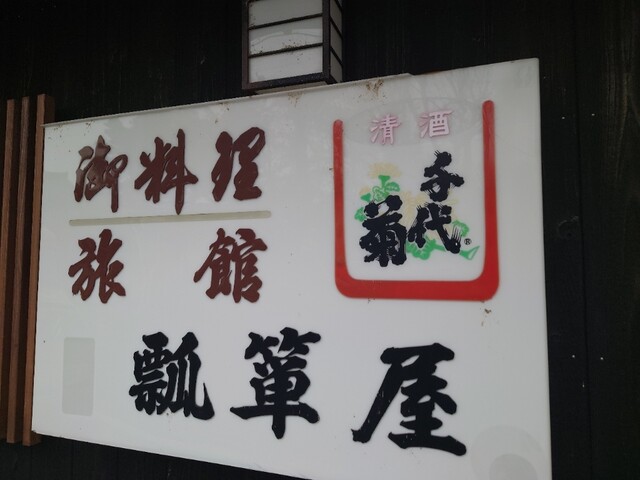 御料理
旅館
清酒
千代菊®
瓢箪屋